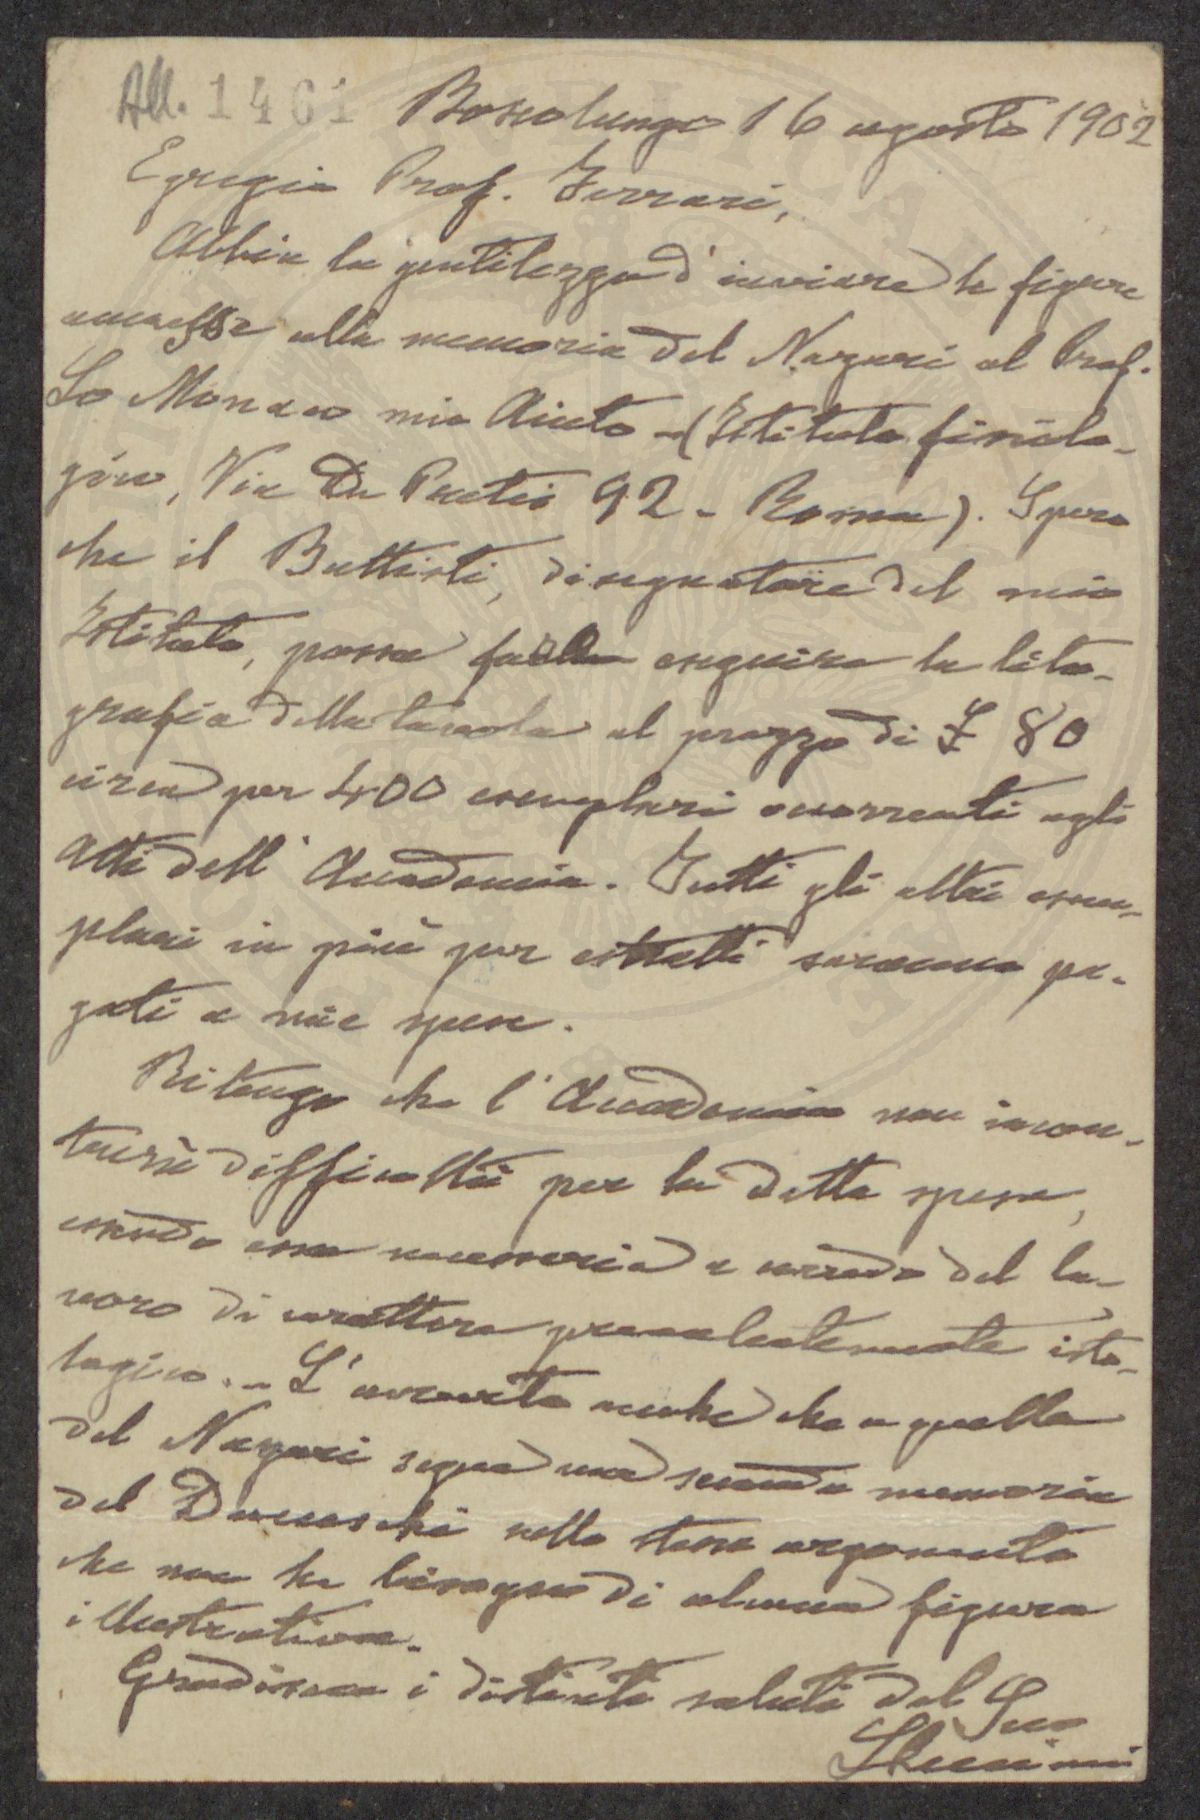 All. 1461 Boscolungo 16 agosto 1902
Egregio Prof. Ferrari,
Abbia la gentilezza d'inviare le figure
annesse alla memoria del Nazari al Prof.
Lo Monaco mio Aiuto - (Istituto fisiolo-
gico, Via De Pretis 92 - Roma). Spero
che il Battisti, disegnatore del mio
Istituto, possa far eseguire la lito-
grafia della tavola al prezzo di £ 80
circa per 400 esemplari occorrenti agli
Atti dell'Accademia. Tutti gli altri esem-
plari in più per estratti saranno pa-
gati a mie spese.
Ritengo che l'Accademia non incon-
trerà difficoltà per la detta spesa,
essendo essa necessaria a corredo del la-
voro di carattere prevalentemente isto-
logico. - L'avverto anche che a quella
del Nazari segue una seconda memoria
del Ducceschi nello stesso argomento
che non ha bisogno di alcuna figura
illustrativa.
Gradisca i distinti saluti del Suo
LLuciani